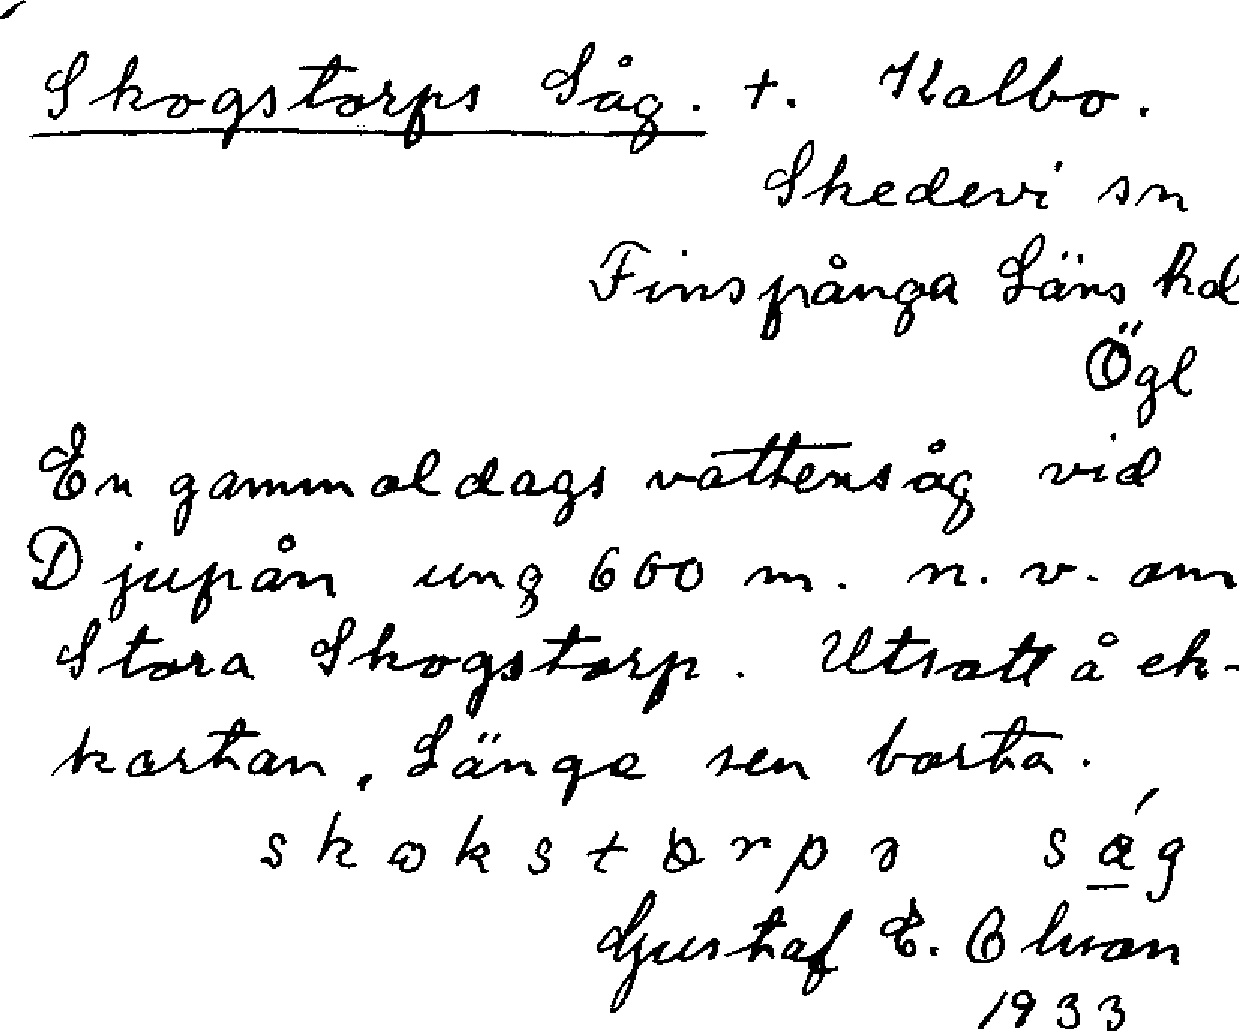 Skogstorps Såg. +. Kalbo.
Skedevi sn
Finspånga Läns hd
Ögl
En gammaldags vattensåg vid
Djupån ung 600 m. n. v. om
Stora Skogstorp. Utsatt å ek-
kartan. Länge sen borta.
såg
Gustaf E. Olson
1933